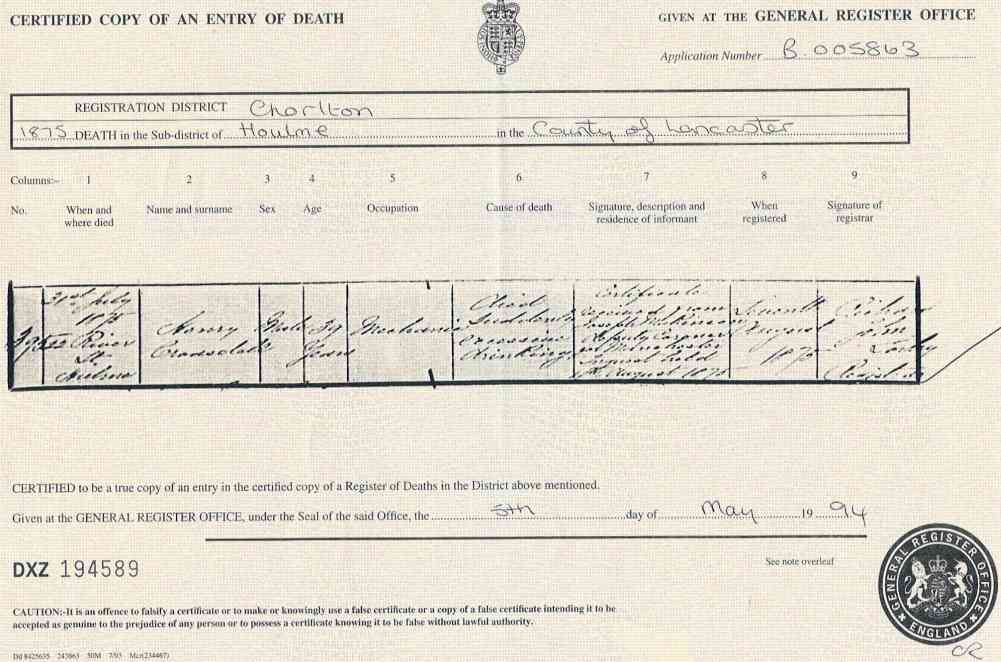 CERTIFIED COPY OF AN ENTRY OF DEATH
GIVEN AT THE GENERAL REGISTER OFFICE
Application Number B.005863
REGISTRATION DISTRICT Chorlton
1875 DEATH in the Sub-district of Houlme in the County of Lancaster
Columns:- 1 2 3 4 5 6 7 8 9
No. When and where died Name and surname Sex Age Occupation Cause of death Signature, description and residence of informant When registered Signature of registrar
31st July 1875
River St
Hulme
Henry
Male
Years
Mechanic
Died Suddenly
excessive drinking
Certificate received from Joseph
Deputy Coroner
Manchester
Inquest held
August 1875
Seventh August 1875
John
Registrar
CERTIFIED to be a true copy of an entry in the certified copy of a Register of Deaths in the District above mentioned.
Given at the GENERAL REGISTER OFFICE, under the Seal of the said Office, the 5th day of May 19 94
See note overleaf
DXZ 194589
CAUTION:-It is an offence to falsify a certificate or to make or knowingly use a false certificate or a copy of a false certificate intending it to be
accepted as genuine to the prejudice of any person or to possess a certificate knowing it to be false without lawful authority.
GENERAL REGISTER OFFICE
ENGLAND
CR
Dd 8425635 243863 50M 7/93 Mcr(234467)